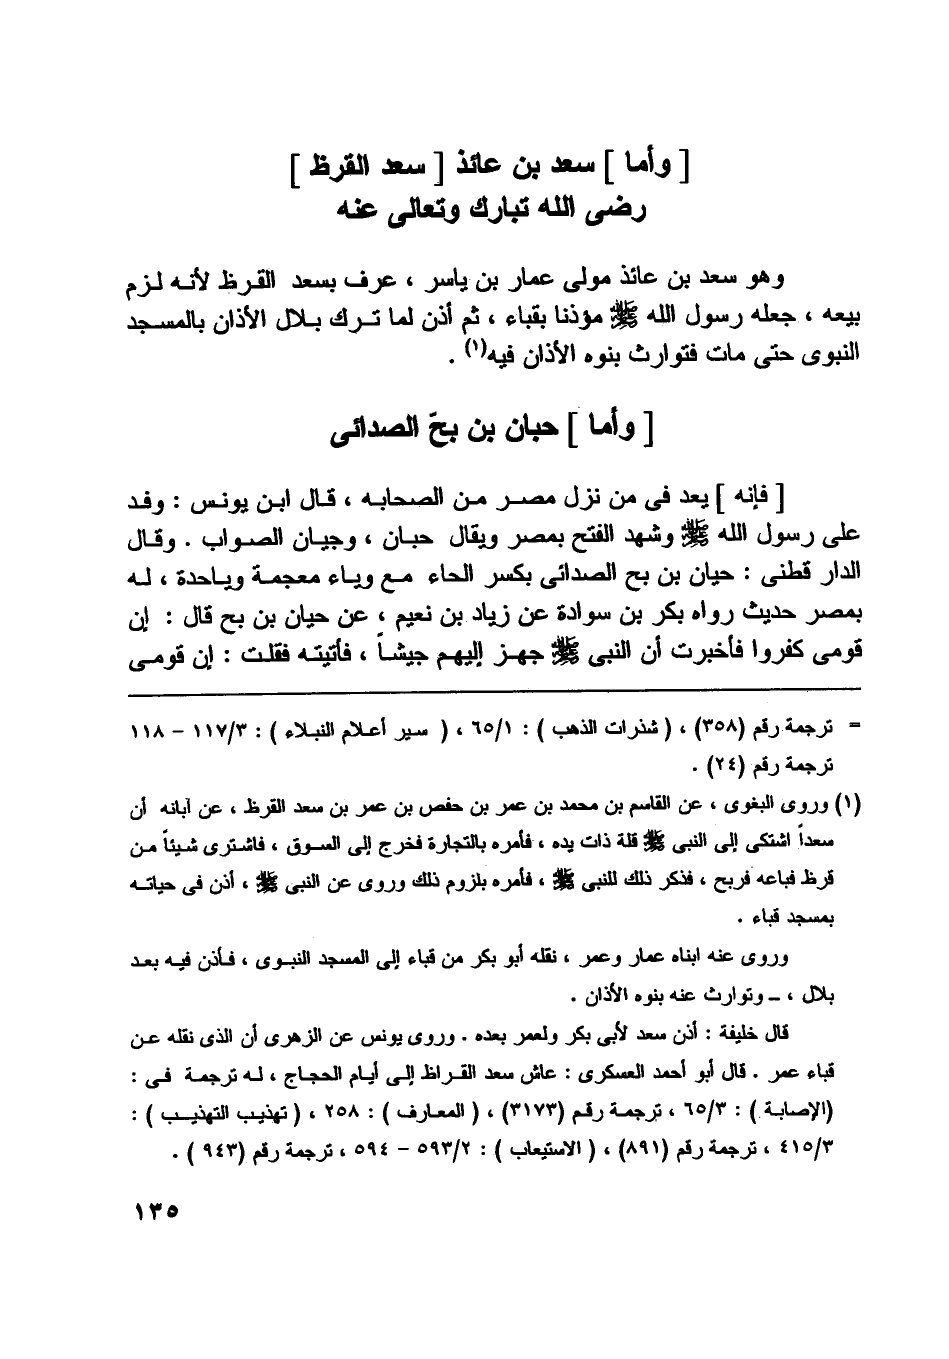 [ وأما ] سعد بن عائذ [ سعد القرظ ]
رضى الله تبارك وتعالى عنه
وهو سعد بن عائذ مولى عمار بن ياسر ، عرف بسعد القرظ لأنه لزم
بيعه ، جعله رسول الله ﷺ مؤذنا بقباء ، ثم أذن لما ترك بلال الأذان بالمسجد
النبوى حتى مات فتوارث بنوه الأذان فيه(١) .
[ وأما ] حبان بن بحّ الصدائى
[ فإنه ] يعد فى من نزل مصر من الصحابه ، قال ابن يونس : وفد
على رسول الله ﷺ وشهد الفتح بمصر ويقال حبان ، وجيان الصواب . وقال
الدار قطنى : حيان بن بح الصدائى بكسر الحاء مع وباء معجمة وباحدة ، له
بمصر حديث رواه بكر بن سوادة عن زياد بن نعيم ، عن حيان بن بح قال : إن
قومى كفروا فأخبرت أن النبى ﷺ جهز إليهم جيشاً ، فأتيته فقلت : إن قومى
= ترجمة رقم (٣٥٨) ، ( شذرات الذهب ) : ٦٥/١ ، ( سير أعلام النبلاء ) : ١١٧/٣ – ١١٨
ترجمة رقم (٢٤) .
(١) وروى البغوى ، عن القاسم بن محمد بن عمر بن حفص بن عمر بن سعد القرظ ، عن آبائه أن
سعداً اشتكى إلى النبى ﷺ قلة ذات يده ، فأمره بالتجارة فخرج إلى السوق ، فاشترى شيئاً من
قرظ فباعه فربح ، فذكر ذلك للنبى ﷺ ، فأمره بلزوم ذلك وروى عن النبى ﷺ ، أذن فى حياته
بمسجد قباء .
وروى عنه ابناه عمار وعمر ، نقله أبو بكر من قباء إلى المسجد النبوى ، فأذن فيه بعد
بلال ، – وتوارث عنه بنوه الأذان .
قال خليفة : أذن سعد لأبى بكر ولعمر بعده . وروى يونس عن الزهرى أن الذى نقله عن
قباء عمر . قال أبو أحمد العسكرى : عاش سعد القراظ إلى أيام الحجاج ، له ترجمة فى :
(الإصابة ) : ٦٥/٣ ، ترجمة رقم (٣١٧٣) ، ( المعارف ) : ٢٥٨ ، ( تهذيب التهذيب ) :
٤١٥/٣ ، ترجمة رقم (٨٩١) ، ( الاستيعاب ) : ٥٩٣/٢ – ٥٩٤ ، ترجمة رقم (٩٤٣ ) .
١٣٥